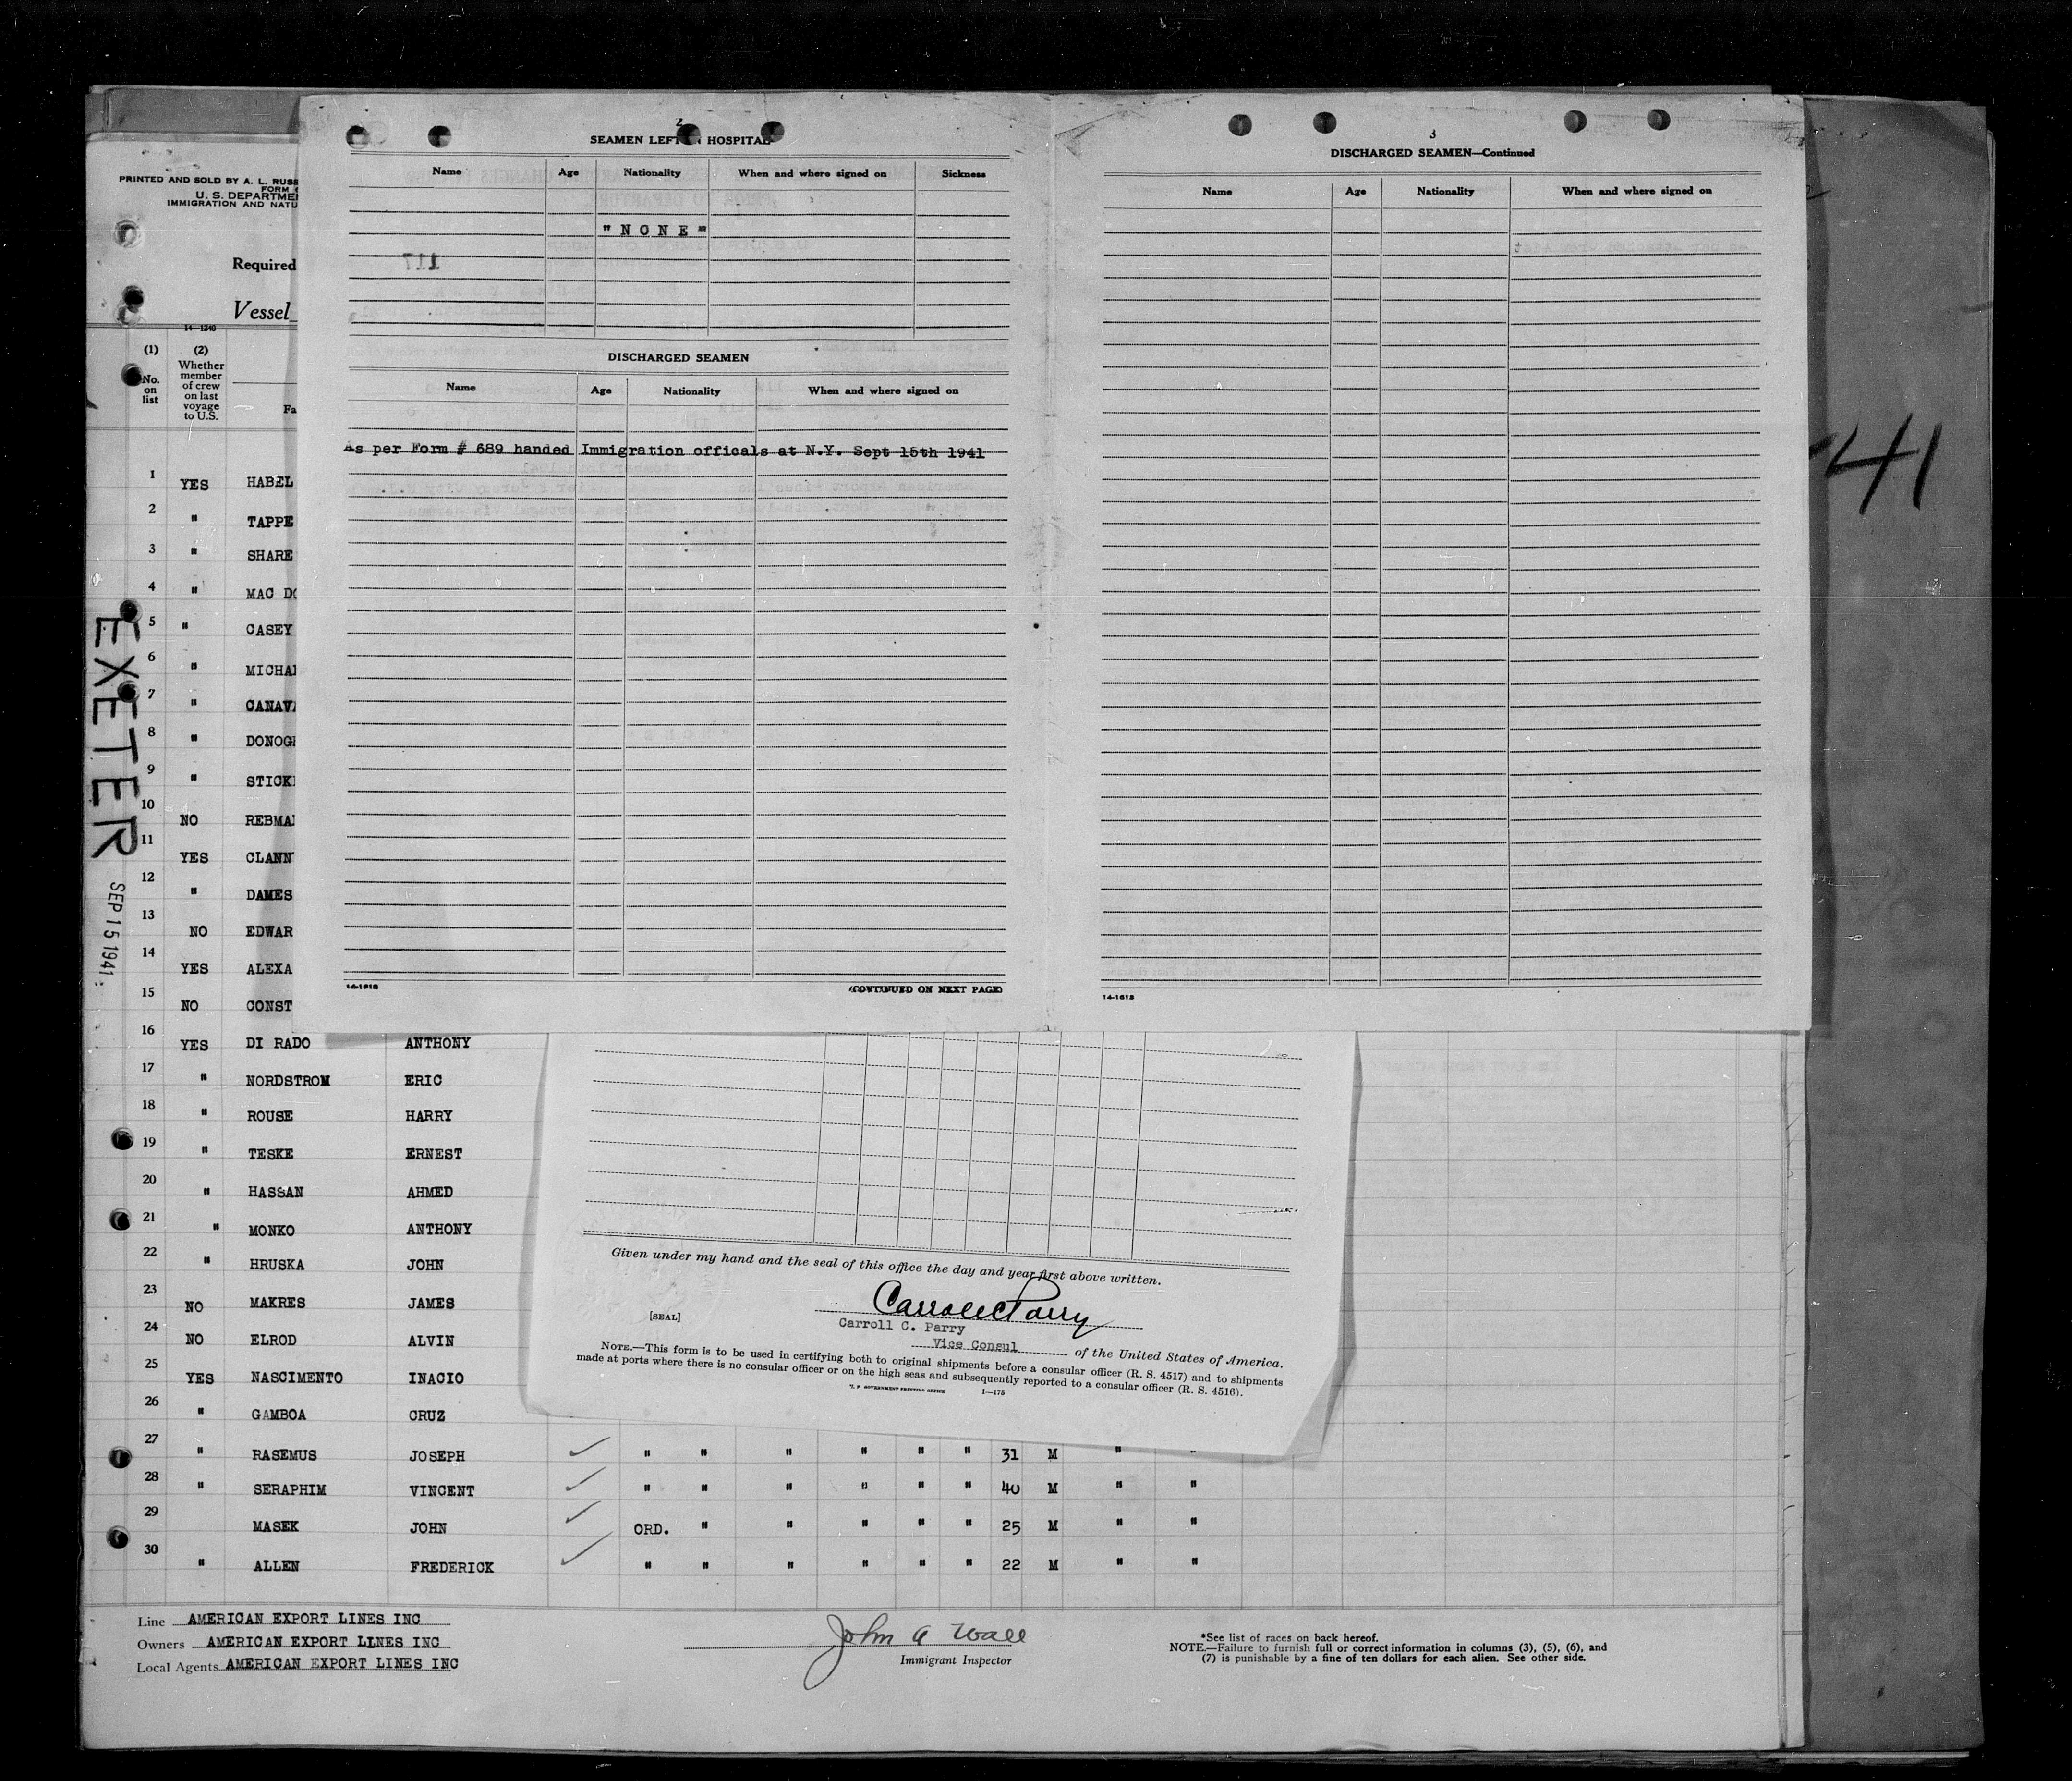 2
SEAMEN LEFT IN HOSPITAL
Name Age Nationality When and where signed on Sickness
"NONE"
117
DISCHARGED SEAMEN
Name Age Nationality When and where signed on
As per Form # 689 handed Immigration officals at N.Y. Sept 15th 1941
14-1618
(CONTINUED ON NEXT PAGE)
3
DISCHARGED SEAMEN—Continued
Name Age Nationality When and where signed on
14-1618
41
PRINTED AND SOLD BY A. L. RUSS
FORM
U. S. DEPARTME
IMMIGRATION AND NATU
Required
Vessel
14-1240
(1) (2)
No. on list
Whether member of crew on last voyage to U.S.
Fa
EXETER
SEP 15 1941
1 YES HABEL
2 " TAPPE
3 " SHARE
4 " MAC DO
5 " CASEY
6 " MICHAE
7 " CANAVA
8 " DONOGH
9 " STICK
10 NO REBMA
11 YES CLANN
12 " DAMES
13 NO EDWAR
14 YES ALEXA
15 NO CONST
16 YES DI RADO ANTHONY
17 " NORDSTROM ERIC
18 " ROUSE HARRY
19 " TESKE ERNEST
20 " HASSAN AHMED
21 " MONKO ANTHONY
22 " HRUSKA JOHN
23 NO MAKRES JAMES
24 NO ELROD ALVIN
25 YES NASCIMENTO INACIO
26 " GAMBOA CRUZ
27 " RASEMUS JOSEPH " " " " " " 31 M " "
28 " SERAPHIM VINCENT " " " " " " 40 M " "
29 MASEK JOHN ORD. " " " " " 25 M " "
30 " ALLEN FREDERICK " " " " " " 22 M " "
Given under my hand and the seal of this office the day and year first above written.
[SEAL]
Carroll C Parry
Carroll C. Parry
Vice Consul of the United States of America.
NOTE.—This form is to be used in certifying both to original shipments before a consular officer (R. S. 4517) and to shipments
made at ports where there is no consular officer or on the high seas and subsequently reported to a consular officer (R. S. 4516).
U. S. GOVERNMENT PRINTING OFFICE 1—175
Line AMERICAN EXPORT LINES INC
Owners AMERICAN EXPORT LINES INC
Local Agents AMERICAN EXPORT LINES INC
John A Wall
Immigrant Inspector
*See list of races on back hereof.
NOTE.—Failure to furnish full or correct information in columns (3), (5), (6), and
(7) is punishable by a fine of ten dollars for each alien. See other side.